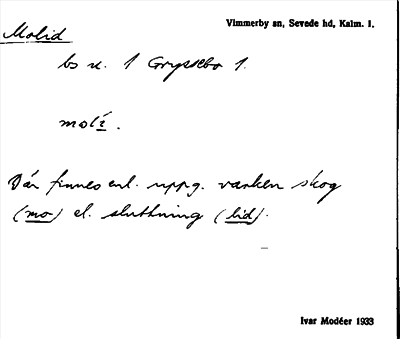 Vimmerby sn, Sevede hd, Kalm. l.
Molid
bs u. 1 Gryssebo 1.
molì.
Där finnes enl. uppg. varken skog
(mo) el. sluttning (lid).
Ivar Modéer 1933